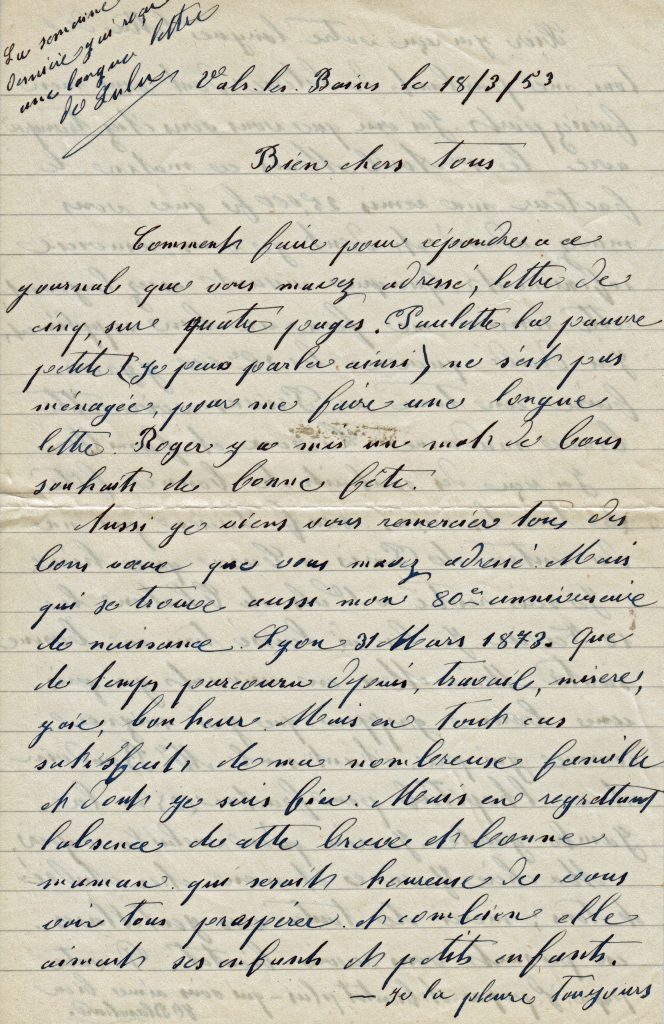 La semaine
dernière j'ai reçu
une longue lettre
de Lulu
Vals-les-Bains le 18/3/53
Bien chers tous
Comment faire pour répondre a ce
journal que vous mavez adressé, lettre de
cinq, sur quatre pages. Paulette la pauvre
petite (je peux parler ainsi) ne s'est pas
ménagée, pour me faire une longue
lettre. Roger y a mis un mot de bons
souhaits de bonne fête.
Aussi je viens vous remercier tous des
bons vœux que vous mavez adressé. Mais
qui se trouve aussi mon 80e anniversaire
de naissance. Lyon 31 Mars 1873. Que
de temps parcouru depuis, travail, misère,
joie, bonheur. Mais en tout cas
satisfait de ma nombreuse famille
et dont je suis fier. Mais en regrettant
l'absence de cette brave et bonne
maman qui serait heureuse de vous
voir tous prospérer et combien elle
aimait ses enfants et petits enfants.
— Je la pleure toujours